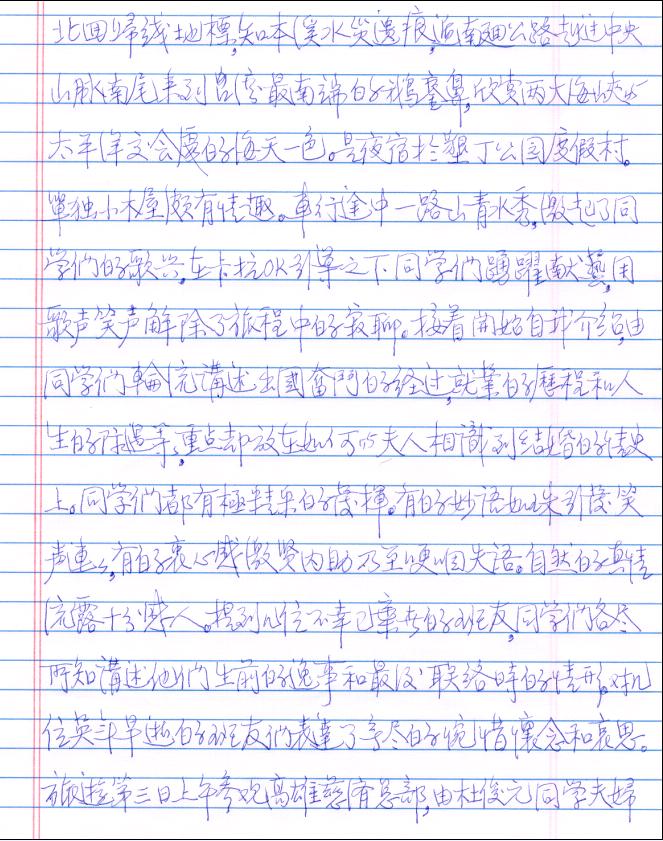 北回歸线地標,知本溪水災遺痕,沿南廻公路越过中央
山脉南尾来到台湾最南端的鹅銮鼻,欣赏两大海峡与
太平洋交会處的海天一色。是夜宿於墾丁公园度假村。
單独小木屋颇有情趣。車行途中一路山青水秀,激起了同
学们的歌兴,在卡拉OK引導之下同学们踴躍献藝,用
歌声笑声解除了旅程中的寂聊。接着開始自我介紹,由
同学们輪流講述出國奮鬥的经过,就業的歷程和人
生的际遇等,重点却放在如何与夫人相識到结婚的情史
上。同学们都有極精采的發揮。有的妙语如珠引發笑
声連連,有的衷心感激贤内助乃至哽咽失语。自然的真情
流露十分感人。提到几位不幸已棄世的班友,同学们各尽
所知講述他们生前的逸事和最後联络時的情形,对几
位英年早逝的班友们表達了不尽的惋惜懷念和哀思。
旅遊第三日上午参观高雄慈济总部,由杜俊元同学夫婦